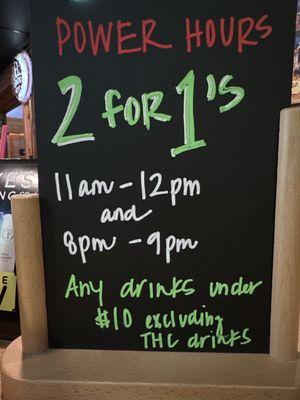 POWER HOURS
2 FOR 1's
11am - 12pm
and
8pm - 9pm
Any drinks under
$10 excluding
THC drinks